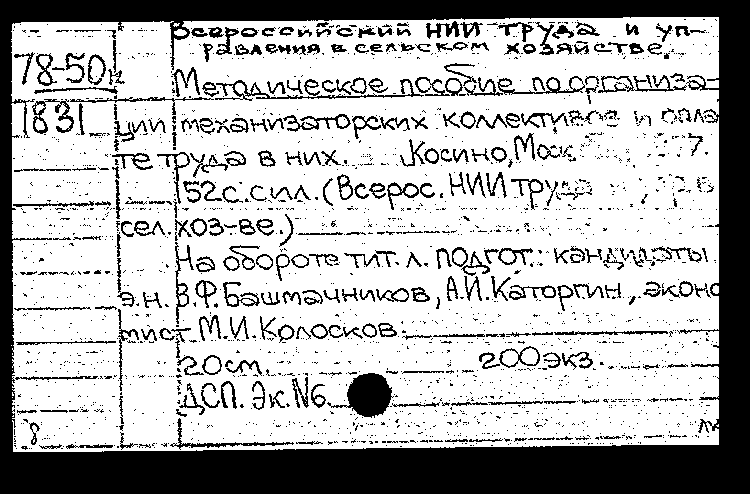 Всероссийский НИИ труда и уп-
равления в сельском хозяйстве.
78-50
Методическое пособие по организа-
1831
ции механизаторских коллективов и опла
те труда в них. Косино, Моск 7.
152с. с ил. (Всерос. НИИ труда
сел. хоз-ве.)
На обороте тит. л. подгот.: кандидаты
э.н. В.Ф. Башмачников, А.И. Каторгин, эконо
мист М.И. Колосков.
20см. 200экз.
ДСП. Эк. №6
8